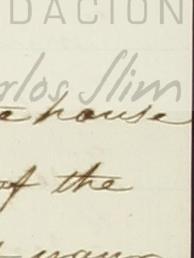 DACIÓN
rlos Slim
e house
of the